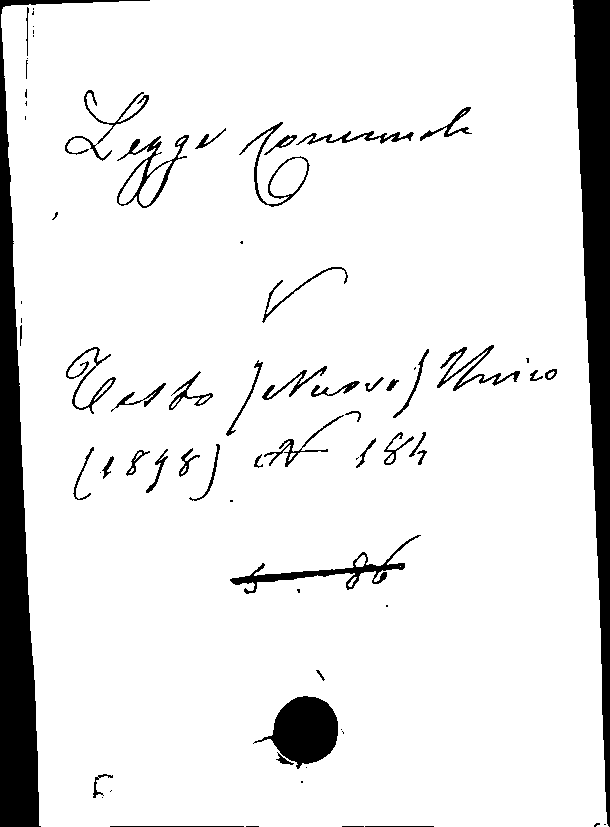 Legge comunale
V
Testo (Nuovo) Unico
(1898) N 184
5 . 86